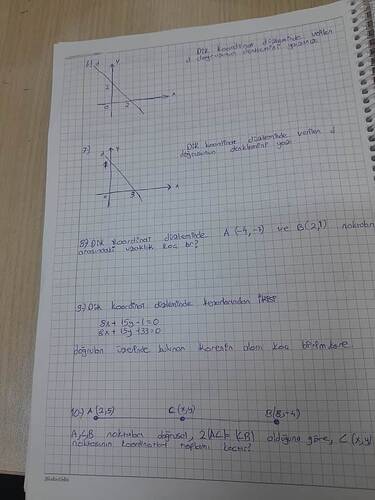 6) d y
Dik koordinat düzleminde verilen
d doğrusunun denklemini yazınız.
2
0 2 x
7) y
Dik koordinat düzleminde verilen d
doğrusunun denklemini yaz
0 3 x
8) Dik koordinat düzleminde A (-4,-7) ve B(2,1) noktaları
arasındaki uzaklık kaç br?
9) Dik koordinat düzleminde kenarlarından ikisi
8x + 15y - 1 = 0
8x + 15y + 33 = 0
doğruları üzerinde bulunan karesin alanı kaç birimkare
10-) A(2,5) C(x,y) B(8,-4)
A,C,B noktaları doğrusal, 2|AC|=|CB| olduğuna göre, C(x,y)
noktasının koordinatları toplamı kaçtır?